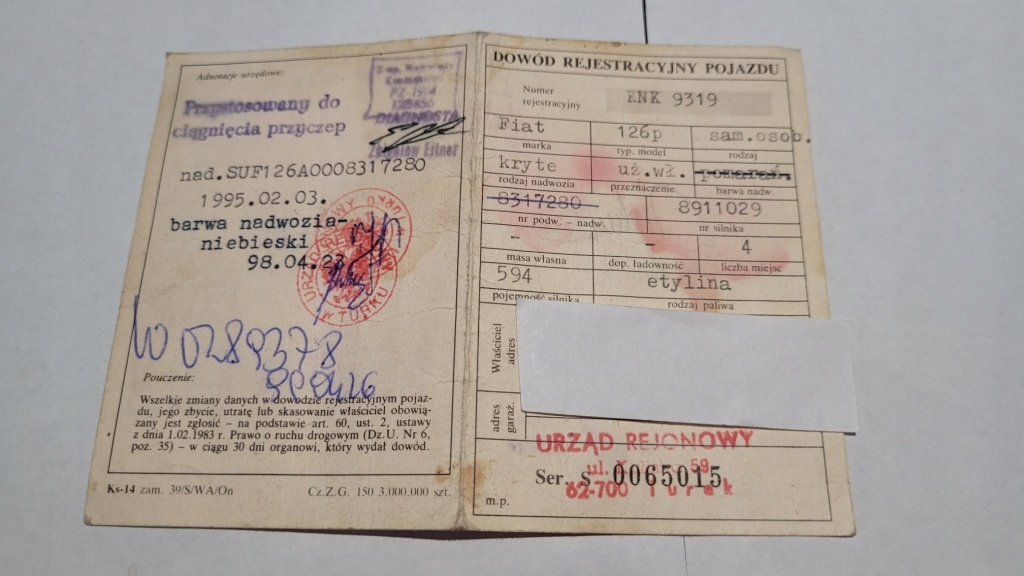 Adnotacje urzędowe:
DIAGNOSTA
Zbigniew Eitner
Przystosowany do
ciągnięcia przyczep
nad.SUF126A0008317280
1995.02.03.
barwa nadwozia-
niebieski
98.04.23
W TURKU
Pouczenie:
Wszelkie zmiany danych w dowodzie rejestracyjnym pojaz-
du, jego zbycie, utratę lub skasowanie właściciel obowią-
zany jest zgłosić – na podstawie art. 60, ust. 2, ustawy
z dnia 1.02.1983 r. Prawo o ruchu drogowym (Dz.U. Nr 6,
poz. 35) – w ciągu 30 dni organowi, który wydał dowód.
Ks-14 zam. 39/S/WA/On Cz.Z.G. 150 3.000.000 szt.
DOWÓD REJESTRACYJNY POJAZDU
Numer
rejestracyjny KNK 9319
Fiat 126p sam.osob.
marka typ. model rodzaj
kryte uż.wł. pomarań.
rodzaj nadwozia przeznaczenie barwa nadw.
8317280 8911029
nr podw. – nadw. nr silnika
- - 4
masa własna dop. ładowność liczba miejsc
594 etylina
pojemność silnika rodzaj paliwa
Właściciel
adres
adres
garaż.
URZĄD REJONOWY
ul. 59
Ser. S 0065015
62-700 Turek
m.p.